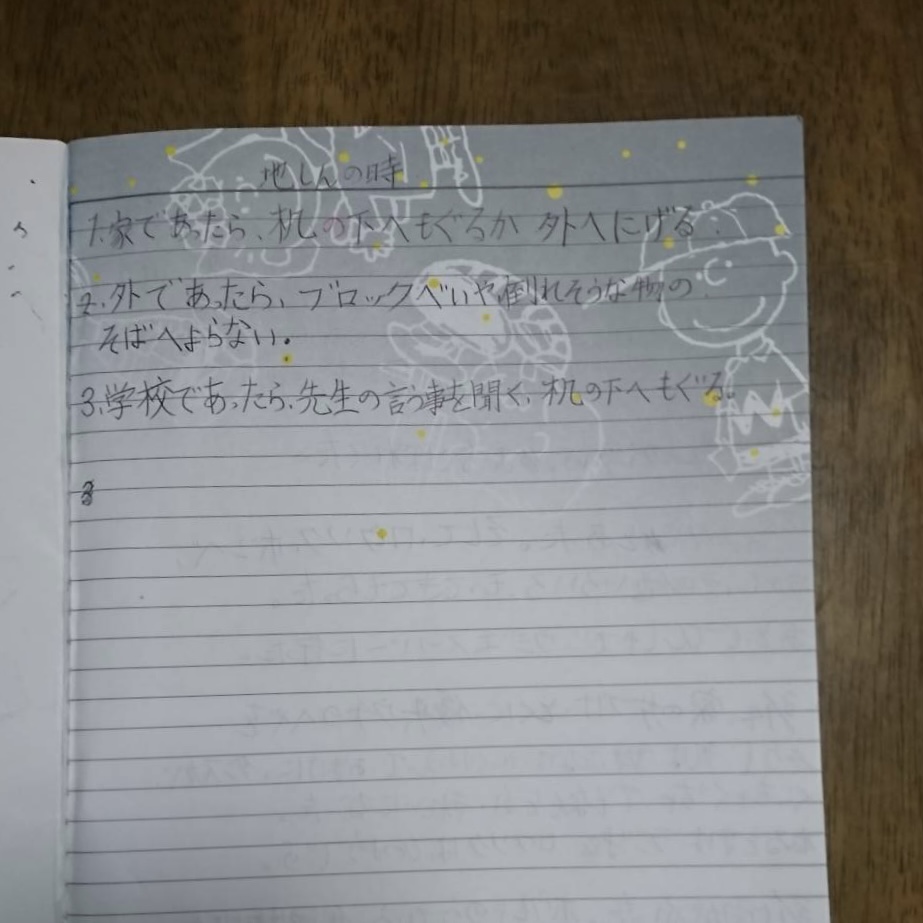 地しんの時
1.家であったら、机の下へもぐるか 外へにげる.
2.外であったら、ブロックべいや倒れそうな物の
そばへよらない。
3.学校であったら、先生の言う事を聞く、机の下へもぐる。